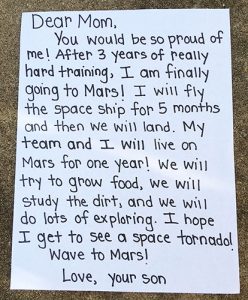 Dear Mom,
You would be so proud of
me! After 3 years of really
hard training, I am finally
going to Mars! I will fly
the space ship for 5 months
and then we will land. My
team and I will live on
Mars for one year! We will
try to grow food, we will
study the dirt, and we will
do lots of exploring. I hope
I get to see a space tornado!
Wave to Mars!
Love, your son